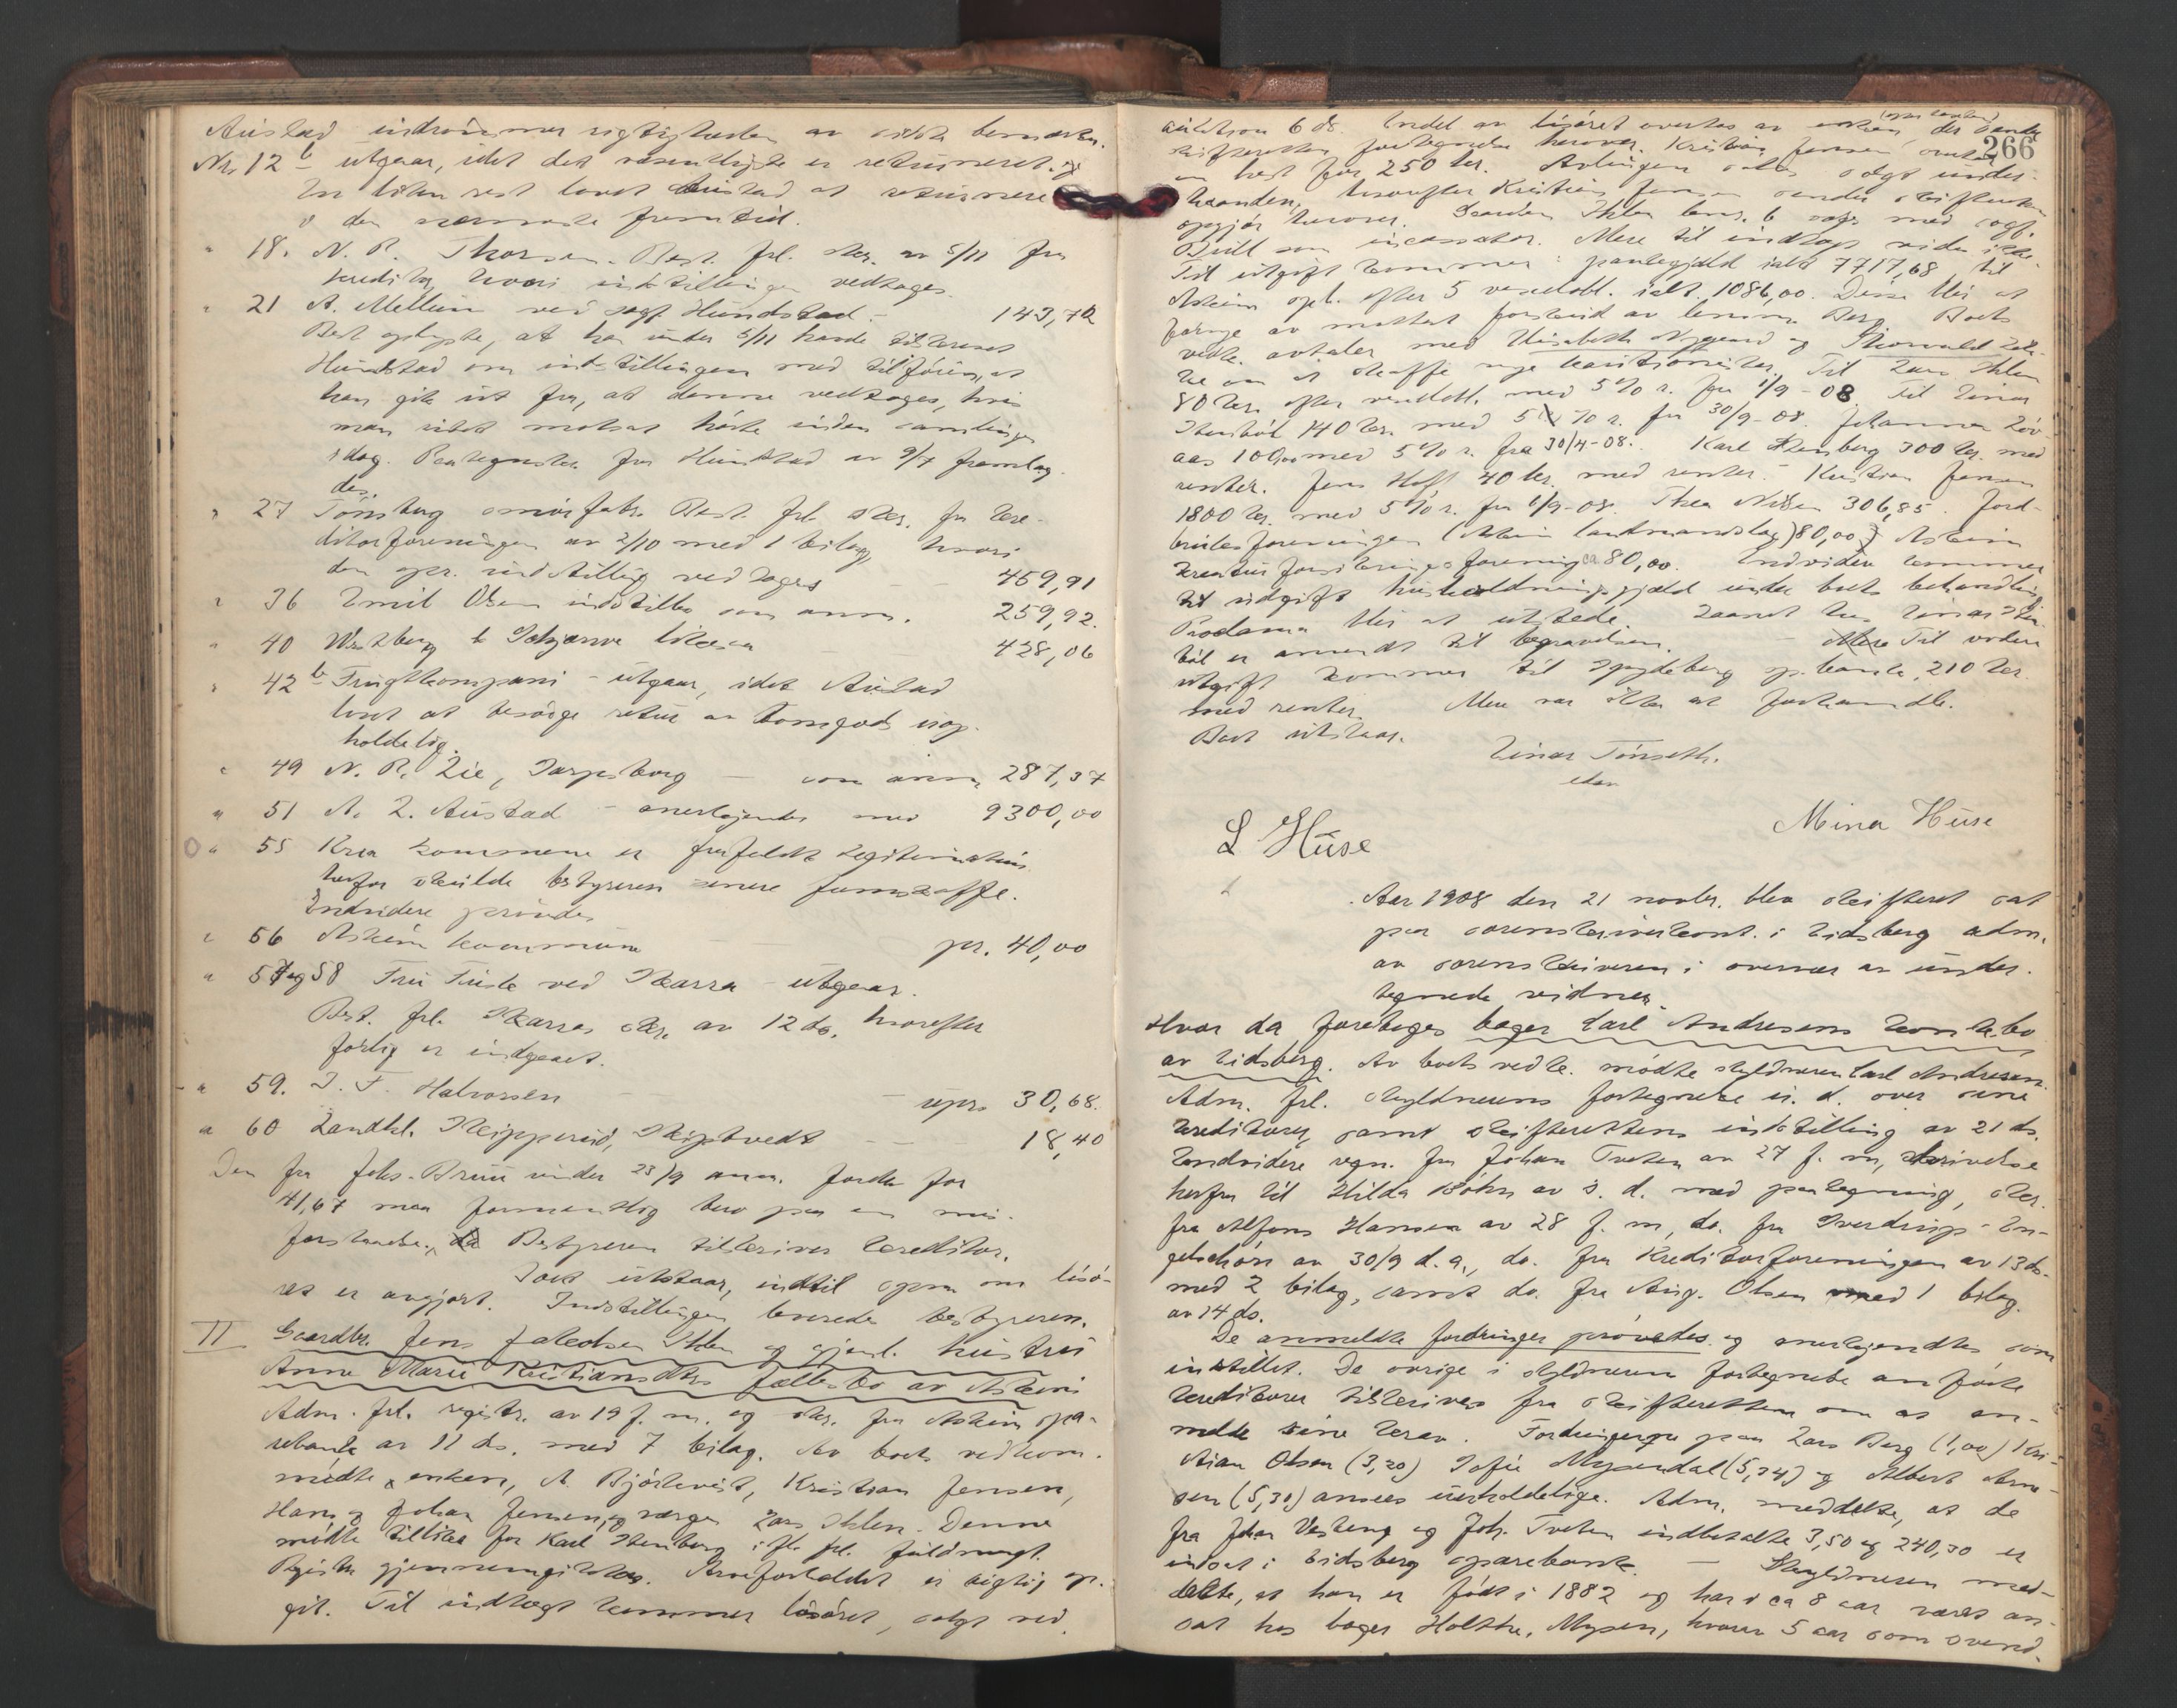 Austad indrømmer rigtigheden av sidste bemærkn.
Nr. 12 b utgaar, idet det væsentligste er returneret og
En liten rest lovet Austad at returnere
i den nærmeste fremtid.
" 18. N. P. Thorsen. Best. frl. skr. av 5/11 fra
kreditor, hvori indstillingen vedtages.
" 21 A. Mellum ved sagf. Hundstad - 143,72
Best. oplyste, at han under 5/11 havde tilskrevet
Hundstad om indstillingen med tilføiende, at
han gik ut fra, at denne vedtages, hvis
man intet motsat hørte inden samlingen
idag. Paategnelse fra Hundstad av 9/7 fremlag-
des.
" 27 Tønsberg smørfabr. Best. frl. skr. fra kre-
ditorforeningen av 2/10 med 1 bilag, hvori
den opr. indstilling vedtages - - 469,91
" 36 Emil Olsen indstilles som anm. 259,92.
" 40 Westberg & Schjærve likesaa - 428,06
" 42 b Frugtkompani - utgaar, idet Austad
lovet at besørge retur av tomgods uop-
holdelig.
" 49 N. P. Lie, Sarpsborg - som anm. 287,37
" 51 A. L. Austad - anerkjendes med 9300,00
" 55 Kra kommune er frafaldt Legitimation
herfor skulde bestyreren senere fremskaffe.
Endvidere prøvedes
" 56 Askim kommune pr. 40,00
" 57 og 58 Fru Fusk ved Skarra - utgaar.
Best. frl. Skarras skr. av 12 ds. hvorefter
forlig er indgaaet.
" 59. J. F. Halvorsen - upr. 30,68.
" 60 Landhl. Skipperud, Skiptvedt - - 18,40
Den fra Johs. Bruu under 23/9 anm. fordr. for
41,67 maa formentlig bero paa en mis-
forstaaelse. Bestyreren tilskriver kreditor.
Boet utstaar, indtil spm. om løsø-
ret er avgjort. Indstillingen leveredes bestyreren.
II Gaardbr. Jens Jakobsen Ihlen og gjenl. hustru
Anne Marie Kristiansdtrs fællesbo av Askim
Adm. frl. registr. av 19 f. m. og skr. fra Askim spa-
rebank av 11 ds. med 7 bilag. Av boets vedkom.
mødte enken, A. Bjørkevist, Kristian Jensen,
Hans og Johan Jensen, og værgen Lars Ihlen. Denne
mødte tillike for Karl Stenberg ifl. frl. fuldmagt.
Registr. gjennemgikkes. Arveforholdet er rigtig op-
git. Til indtægt kommer løsøret, solgt ved
266
auktion 6 ds. Endel av løsøret overtas av enken, der sender
skifteretten fortegnelse herover. Kristian Jensen overtar
en hest for 250 kr. Avlingen sælges solgt under-
haanden, hvorefter Kristian Jensen sender skifteretten
opgjør herover. Gaarden Ihlen lens. 6 solgt med sagf.
Bull som incassator. Mere til indtægt vides ikke.
Til utgift kommer: pantegjæld ialt 7717,68 til
Askim spb. efter 5 vexelobl. ialt 1086,00. Disse blir at
fornye av mottat forskud av lensm. Berg. Boets
vedk. avtaler med Elisabeth Nygaard og Thorvald Løk-
ke om at skaffe nye kautionister. Til Lars Ihlen
80 kr. efter vexelobl. med 5 % r. fra 1/9-08. Til Einar
Stenbøl 140 kr. med 5 % r. fra 30/9-08. Johannes Løv-
aas 100,00 med 5 % r. fra 30/4-08. Karl Stenberg 300 kr. med
renter. Jens Hoff 40 kr. med renter. - Kristian Jensen
1800 kr. med 5 % r. fra 6/9-08. Thea Nilsen 306,85. Jord-
bruksforeningen (Askim landmandslag) 80,00, Askim
kreaturforsikringsforening ca 80,00. Endvidere kommer
til utgift husholdningsgjæld under boets behandling.
Proclama blir at utstede. Laanet hos Einar Sten-
bøl er anvendt til begravelsen. - Til videre
utgift kommer til Spydeberg sp.bank 210 kr.
med renter. Mere var ikke at forhandle.
Boet utstaar.
Einar Tønseth.
edsv
L Huse
Mina Huse
Aar 1908 den 21 novbr. blev skifteret sat
paa sorenskriverkont. i Eidsberg adm.
av sorenskriveren i overvær av under-
tegnede vidner.
Hvor da foretoges bager Carl Andresens konk.bo
av Eidsberg. Av boets vedk. mødte skyldneren Carl Andresen.
Adm. frl. skyldnerens fortegnelse u. d. over sine
kreditorer, samt skifterettens indstilling av 21 ds.
Endvidere regn. fra Johan Tveten av 27 f. m., skrivelse
herfra til Hilda Bøhn av s. d. med paategning, skr.
fra Alfons Hansen av 28 f. m., do. fra Sverdrup-En-
gelschøn av 30/9 d. a., do. fra Kreditorforeningen av 13 ds.
med 2 bilag, samt do. fra Aug. Olsen med 1 bilag.
av 14 ds.
De anmeldte fordringer prøvedes og anerkjendtes som
instillet. De øvrige i skyldnerens fortegnelse anførte
kreditorer tilskrives fra skifteretten om at an-
melde sine krav. Fordringerne paa Lars Berg (1,00) Kri-
stian Olsen (3,20) Sofie Mysendal (5,34) og Albert Arne-
sen (5,30) ansees uerholdelige. Adm. meddelte, at de
fra Johan Vesteng og Joh. Tveten indbetalte 3,50 og 240,30 er
indsat i Eidsberg sparebank. - Skyldneren med-
delte, at han er født i 1882 og har i ca 8 aar været an-
sat hos bager Holthe, Mysen, hvorav 5 aar som svend.